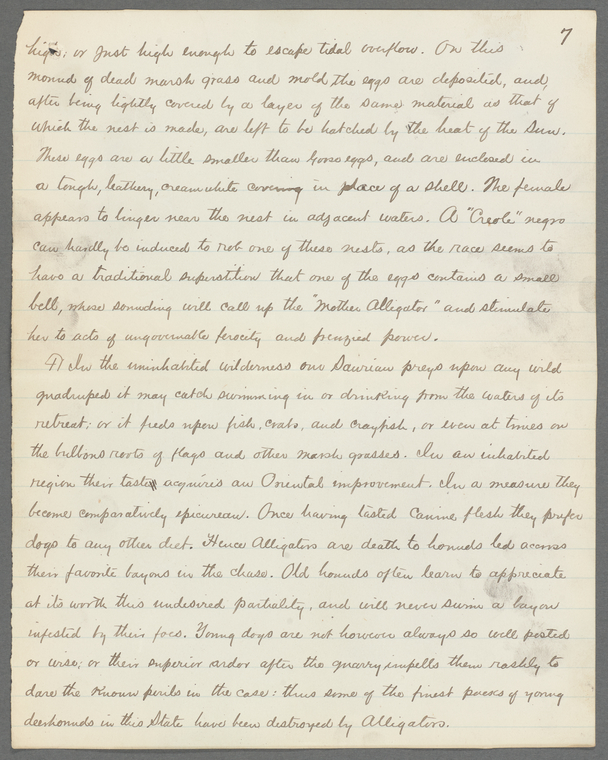 7
high; or just high enough to escape tidal overflow. On this
mound of dead marsh grass and mold, the eggs are deposited, and,
after being lightly covered by a layer of the same material as that of
which the nest is made, are left to be hatched by the heat of the Sun.
These eggs are a little smaller than Goose eggs, and are enclosed in
a tough, leathery, cream white covering in place of a shell. The female
appears to linger near the nest in adjacent waters. A "Creole" negro
can hardly be induced to rob one of these nests, as the race seems to
have a traditional superstition that one of the eggs contains a small
bell, whose sounding will call up the "Mother Alligator" and stimulate
her to acts of ungovernable ferocity and frenzied power.
¶) In the uninhabited wilderness our Saurian preys upon any wild
quadruped it may catch swimming in or drinking from the waters of its
retreat; or it feeds upon fish, crabs, and crayfish, or even at times on
the bulbous roots of flags and other marsh grasses. In an inhabited
region their taste acquires an Oriental improvement. In a measure they
become comparatively epicurean. Once having tasted Canine flesh they prefer
dogs to any other diet. Hence Alligators are death to hounds led across
their favorite bayous in the chase. Old hounds often learn to appreciate
at its worth this undesired partiality, and will never swim a bayou
infested by their foes. Young dogs are not however always so well posted
or wise; or their superior ardor after the quarry impells them rashly to
dare the known perils in the case: thus some of the finest packs of young
deerhounds in this State have been destroyed by Alligators.